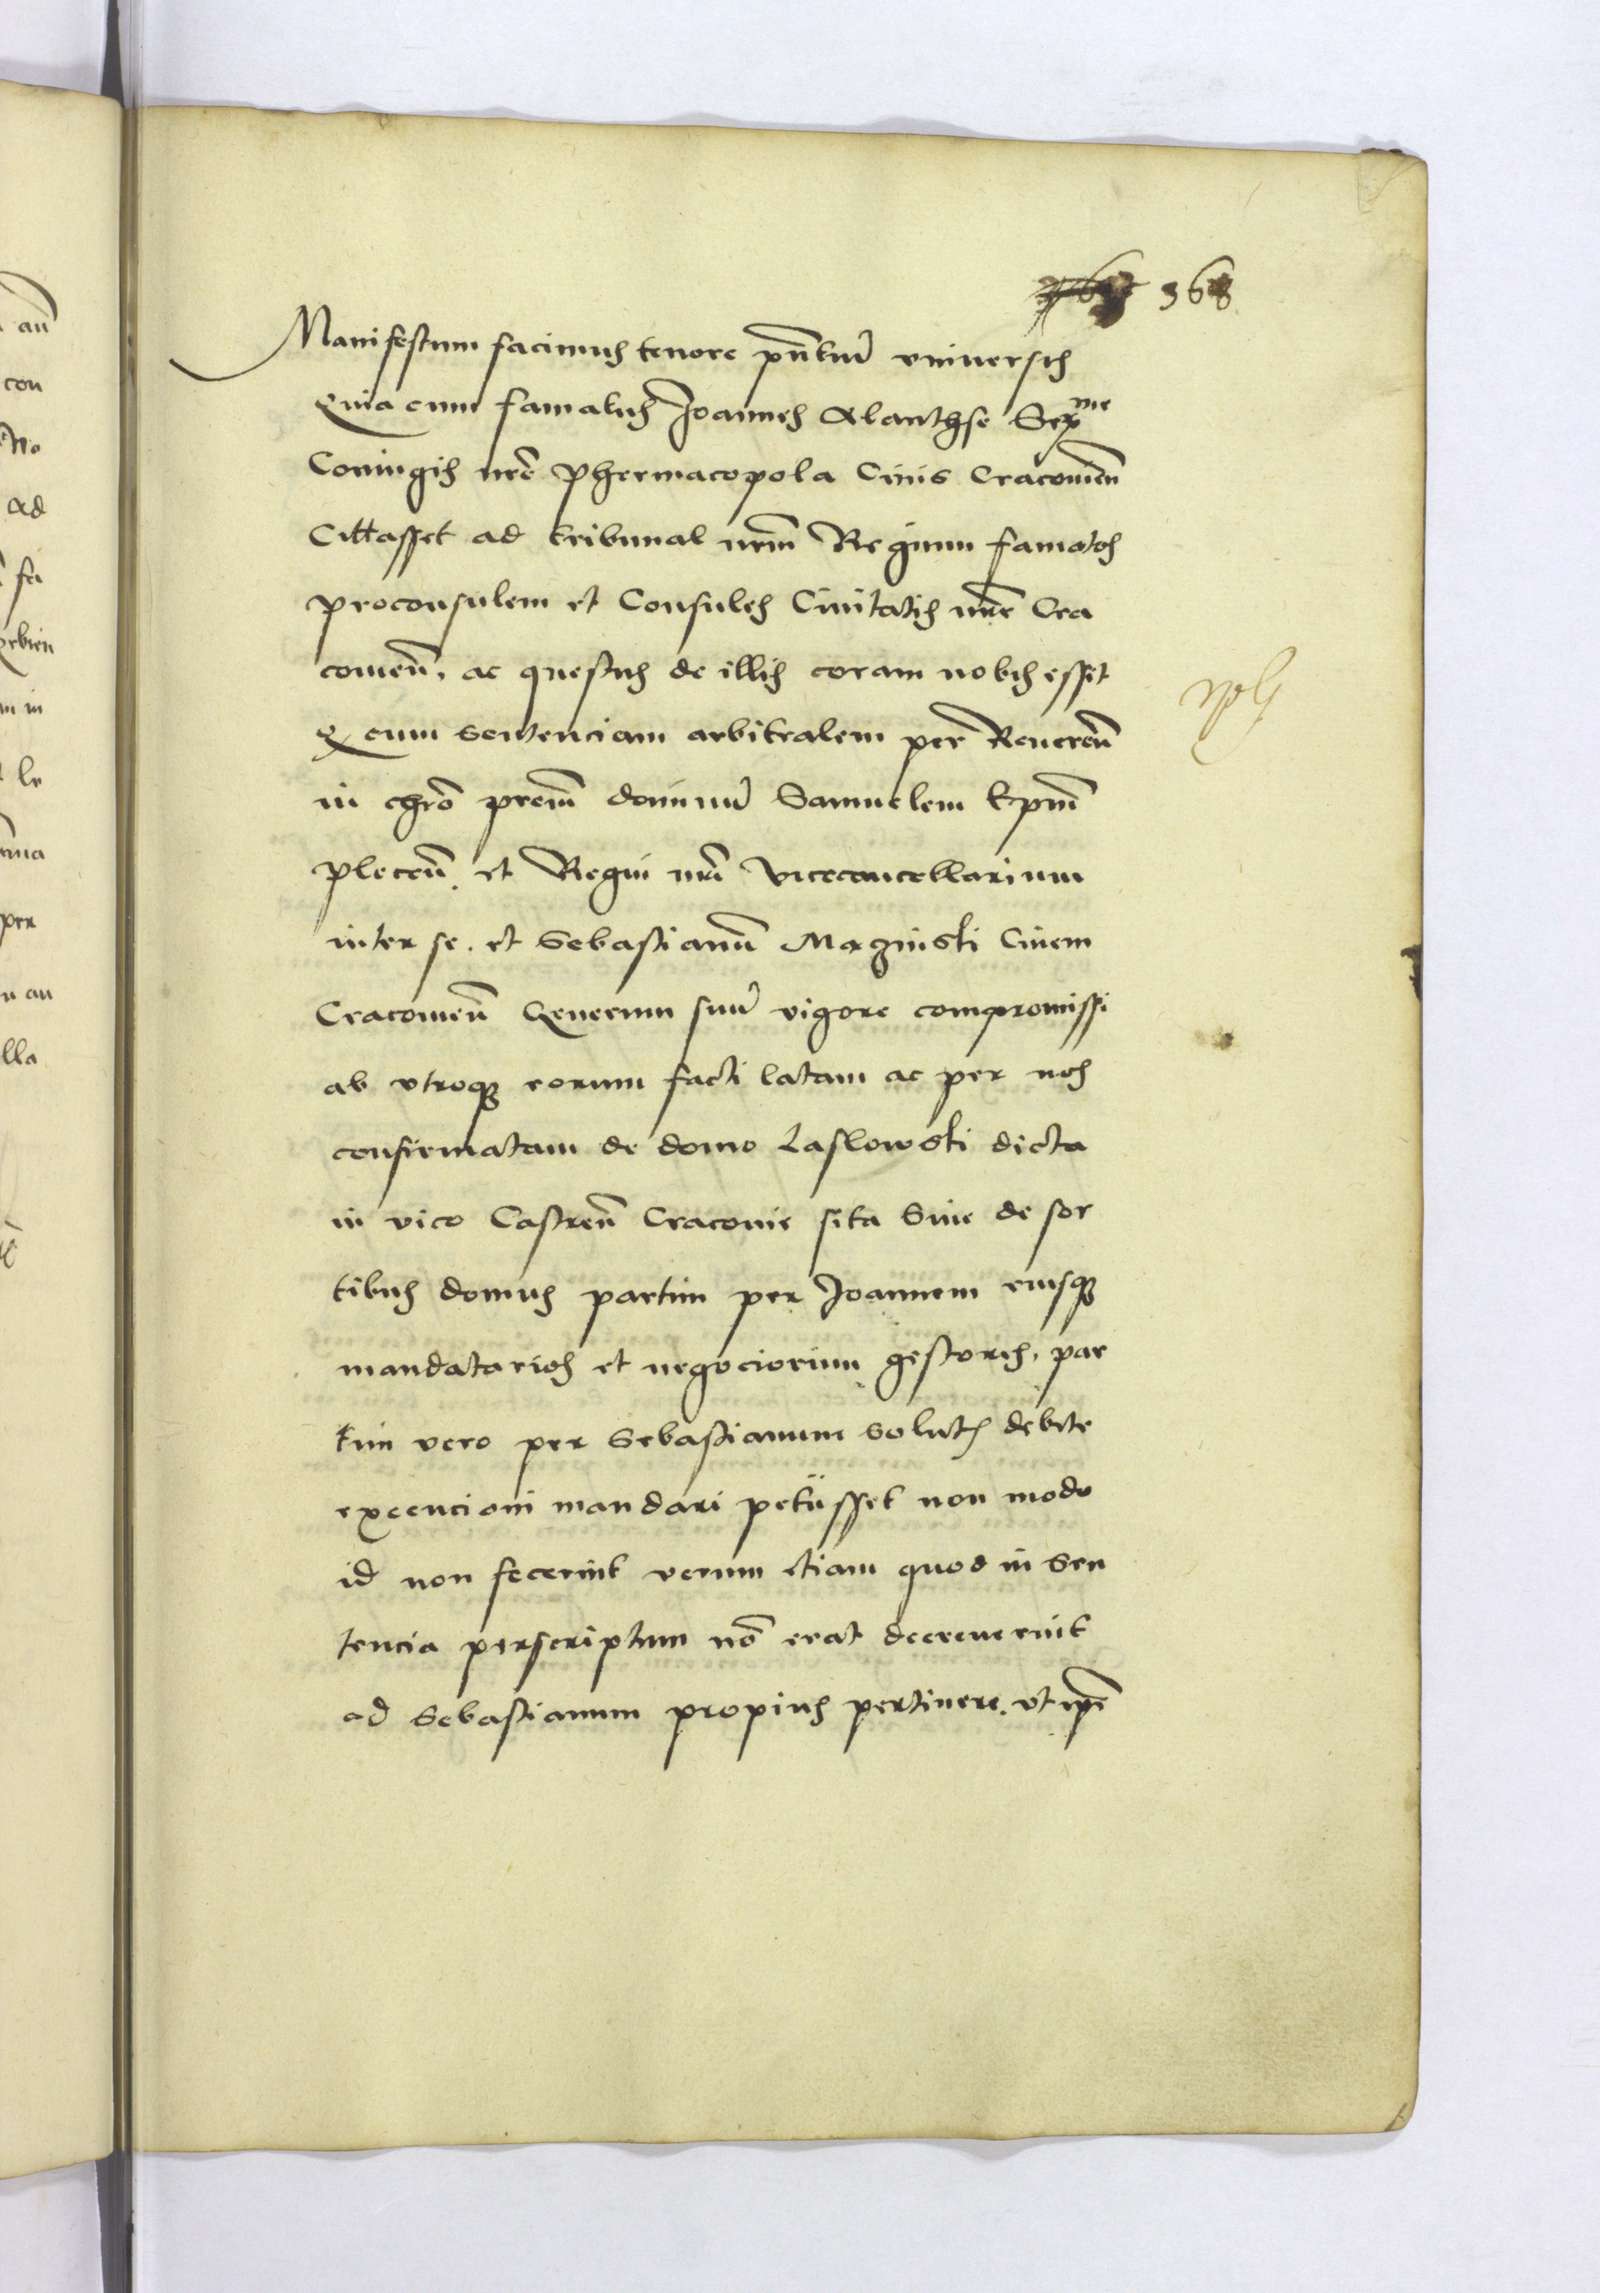 368
Manifestum facimus tenore pñtiũ vniversis
Quia cum famatus Joannes Alanthse Serme
Coniugis nrẽ phermacopola Civis Cracovieñ
Cittasset ad tribunal nrm̃ Regium famatos
proconsulem et Consules Civitatis nrẽ Cra
covieñ. ac questus de illis coram nobis esset
q cum sentenciam arbitralem per Reverenͫ
in chrõ prem̃ dominũ Samuelem Epm̃
ploceñ et Regni nrĩ vicecancellarium
inter se. et Sebastianũ Marzinski Civem
Cracovieñ Generum suũ vigore compromissi
ab utroqꝫ eorum facti latam ac per nos
confirmatam de domo Laslowski dicta
in vico Castreñ Cracovie sita Sive de sor
tibus domus partim per Joannem eiusqꝫ
mandatarios et negociorum gestores, par
tim vero per Sebastianum solutis debite
execucioni mandari petiisset non modo
id non fecerint verum etiam quod in Sen
tencia perscriptum nõ erat decreverint
ad Sebastianum propius pertinere. ut ipẽ